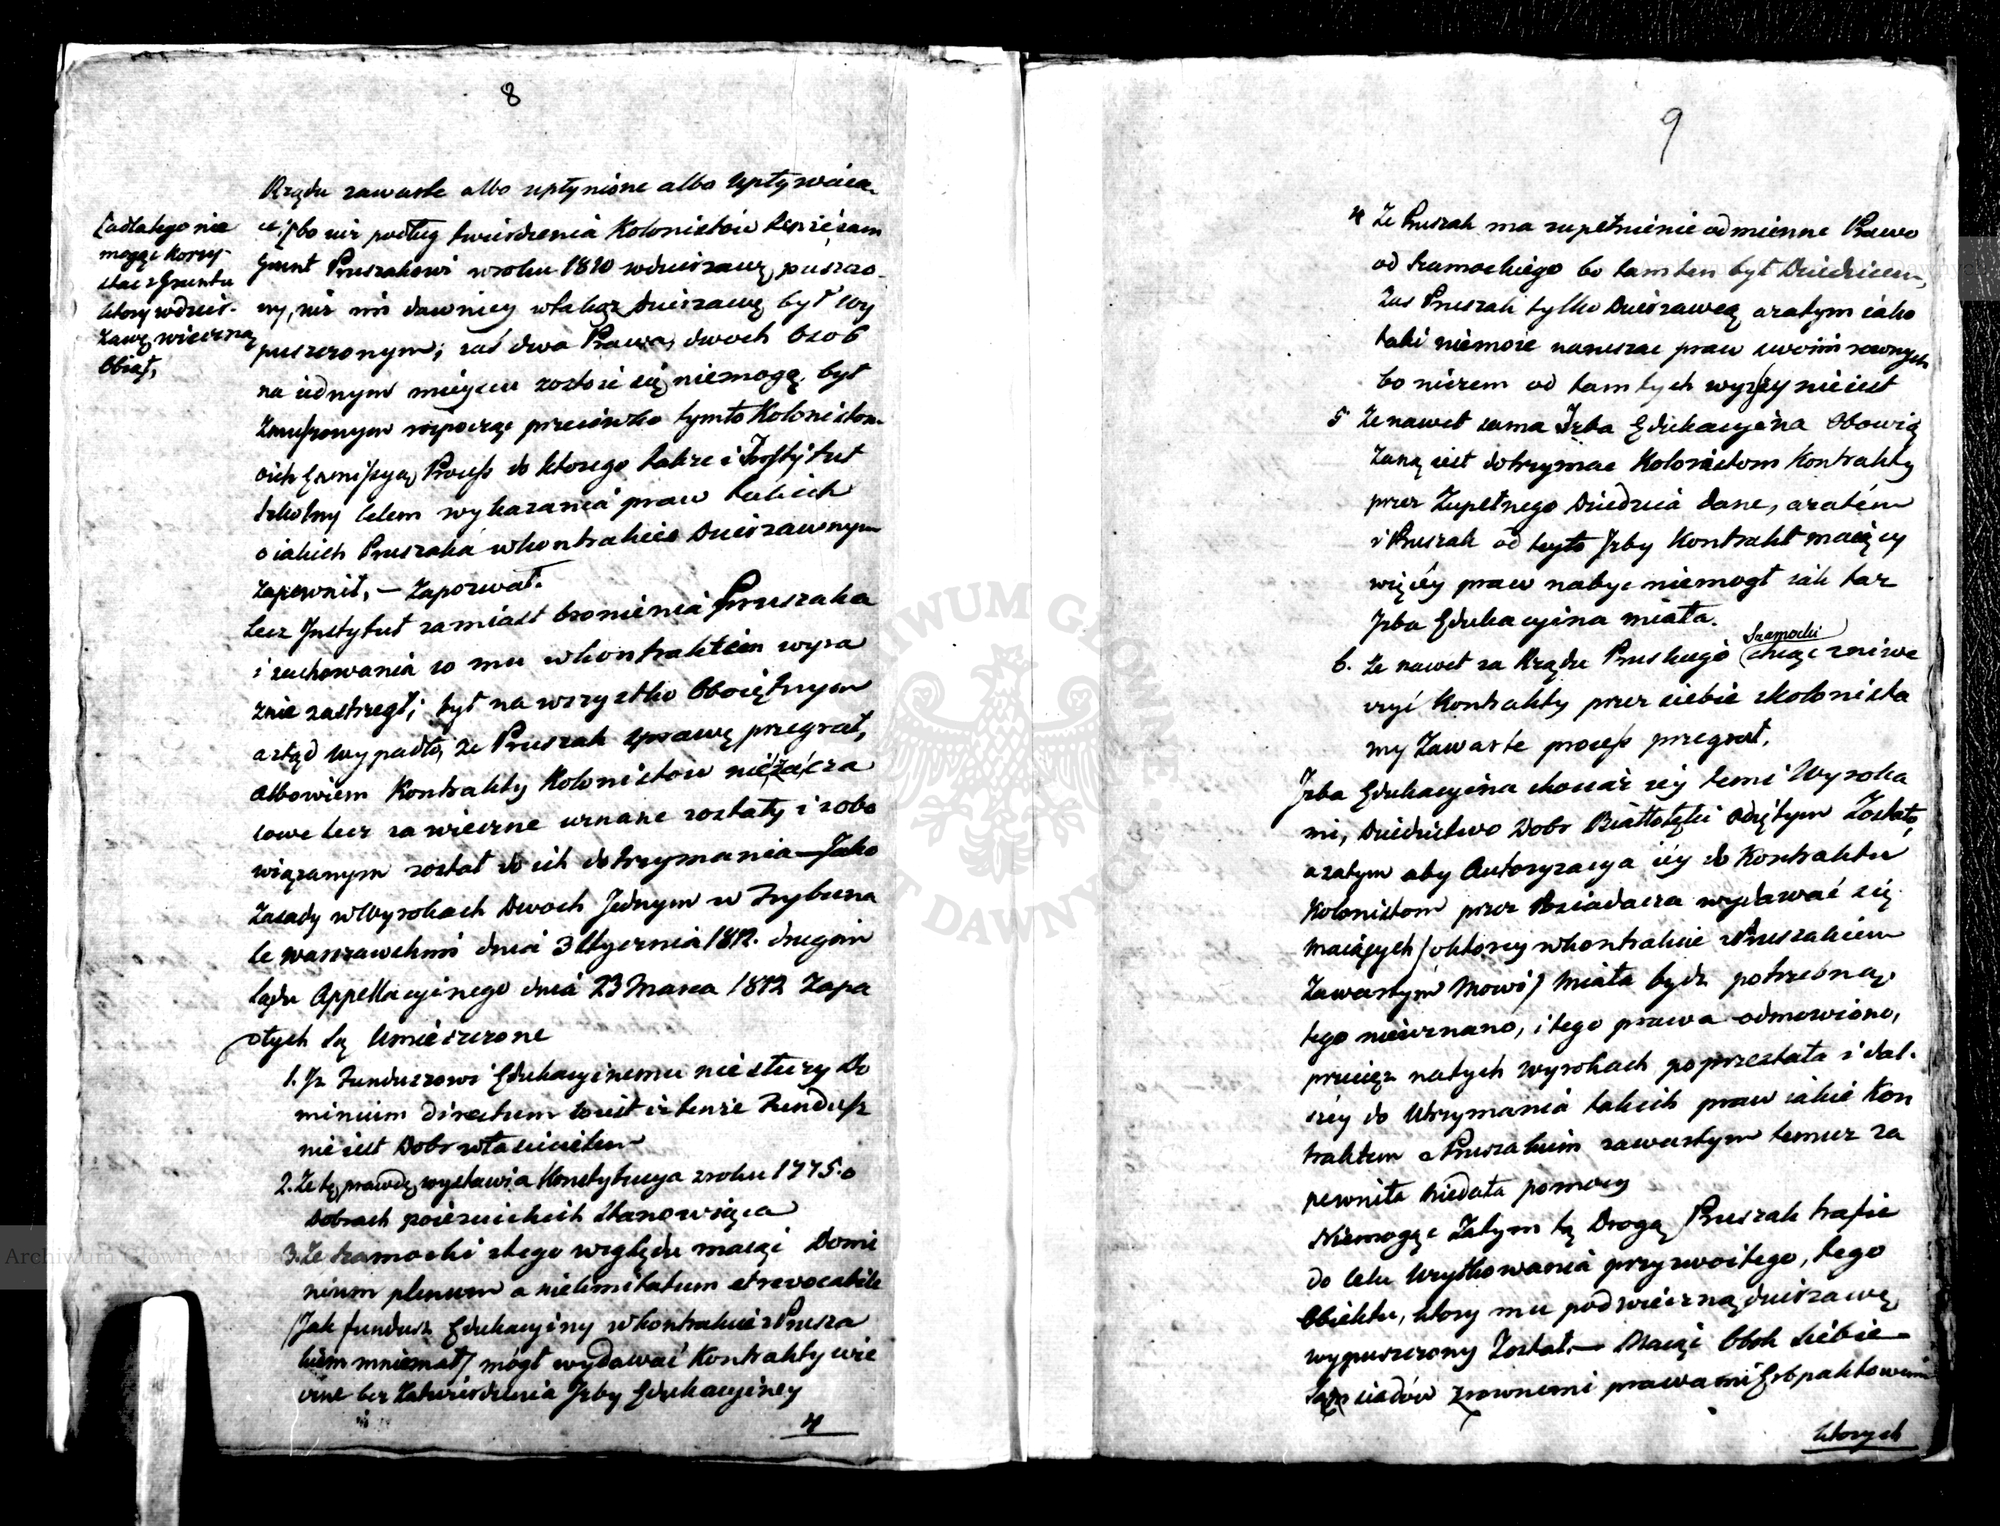 8
Rządu zawarte albo upłynione albo Upływaią-
ce, bo niż podług twierdzenia Kolonistów tenże sam
Grunt Pruszakowi w roku 1810 w dzierzawę puszczo-
ny, niż im dawniey w takąż Dzierzawę był wy
puszczonym; zaś dwa Prawa, dwoch Osob
na iednym mieyscu zostać się niemogą, był
Zmuszonym rospocząć przeciwko tymto Koloniston
o ich Exmissyą Process do ktorego także i Instytut
Szkolny celem wykazania praw takich
o iakich Pruszaka w kontrakcie Dzierzawnym
Zapewnił, — Zapozwał.
Lecz Instytut zamiast bronienia Pruszaka
i zachowania co mu w kontraktem wyra
źnie zastrzegł; był na wszystko Oboiętnym
a ztąd wypadło, że Pruszak sprawę przegrał,
Albowiem Kontrakty Kolonistow nie za cza
sowe lecz za wieczne uznane zostały i zobo
wiązanym został do ich dotrzymania — Jako
Zasady w Wyrokach Dwoch Jednym w Trybuna
le Warszawskim dnia 3 Stycznia 1812. drugim
Sądu Appellacyinego dnia 23 Marca 1812 Zapa
dłych są Umieszczone
1. Iż Funduszowi Edukacyinemu nie służy Do
minium directum to iest iż tenże Fundusz
nie iest Dobr właścicielem
2. Że tę prawdę wystawia Konstytucya z roku 1775. o
Dobrach poiezuickich stanowiąca
3. Że Szamocki z tego względu maiąc Domi
nium plenum a nielimitatum et revocabile
/Jak fundusz Edukacyiny w kontrakcie z Prusza
kiem mniemał/ mógł wydawać Kontrakty wie
czne bez Zatwierdzenia Izby Edukacyiney
4
[adlatego nie
mogąc korzy-
stać z Gruntu
ktory w dzier-
żawę wieczną
Obiął,
9
4 Że Pruszak ma zupełnienie odmienne Prawo
od Szamockiego bo tamten był Dziedzicem,
Zas Pruszak tylko Dzierzawcą a zatym iako
taki niemoże naruszac praw swoim rownych
bo niczem od tamtych wyższy nie iest
5 Że nawet sama Izba Edukacyina Obowią
Zaną iest dotrzymac Kolonistom Kontrakty
przez Zupełnego Dziedzica dane, a zatém
i Pruszak od teyto Izby Kontrakt maiący
więcéy praw nabyc niemogł iak taz
Izba Edukacyina miała.
Szamocki
6. Że nawet za Rządu Pruskiego chcąc zniwe
czyć Kontrakty przez siebie z kolonista
my Zawarte process przegrał.
Izba Edukacyina chociaż iey temi Wyroka
mi, Dziedzictwo Dobr Białłołęki Odiętym Zostało,
a zatym aby Autoryzacya iéy do Kontraktu
Kolonistom przez Posiadacza wydawać się
maiących /o ktorey w kontrakcie z Pruszakiem
Zawartym Mowi/ Miała bydz potrzebną
tego nieuznano, i tego prawa odmowiono,
przecięz na tych wyrokach poprzestała i dal-
széy do Utrzymania takich praw iakie Kon
traktem z Pruszakiem zawartym temuz za
pewniła niedała pomocy
Niemogąc Zatym tą Drogą Pruszak trafić
do celu Uzytkowania przyzwoitego, tego
Obiektu, ktory mu pod wieczną dzierzawę
wypuszczony Został — Maiąc Obok siebie
Sąsiadów z rownemi prawami Erbpaktowemi
ktorych